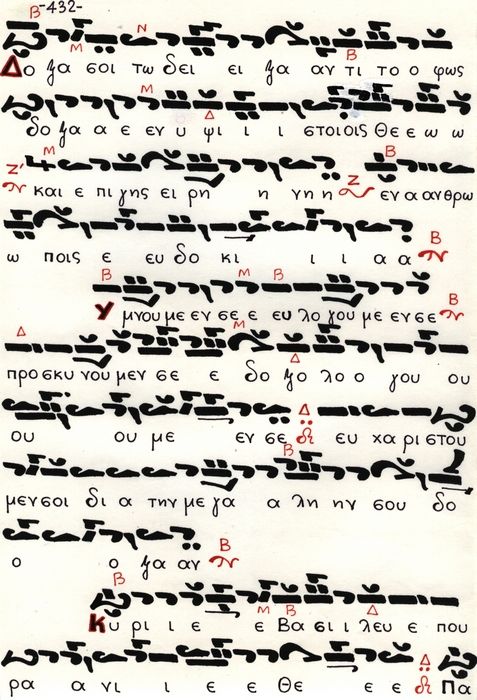 -432-
Δο ξα σοι τω δει ει ξα αν τι το ο φως
δο ξα α ε εν υ ψι ι ι στοιοις Θε ε ω ω
και ε πι γης ει ρη η νη η εν α ανθρω
ω ποις ε ευ δο κι ι ι α α
Υ μνου με εν σε ε ευ λο γου με εν σε
προ σκυ νου μεν σε ε δο ξο λο ο γου ου
ου ου με εν σε ευ χα ρι στου
μεν σοι δι α την με γα α λη ην σου δο
ο ο ξα αν
Κυ ρι ι ε ε Βα σι ι λευ ε που
ρα α νι ι ε ε Θε ε ε Πα